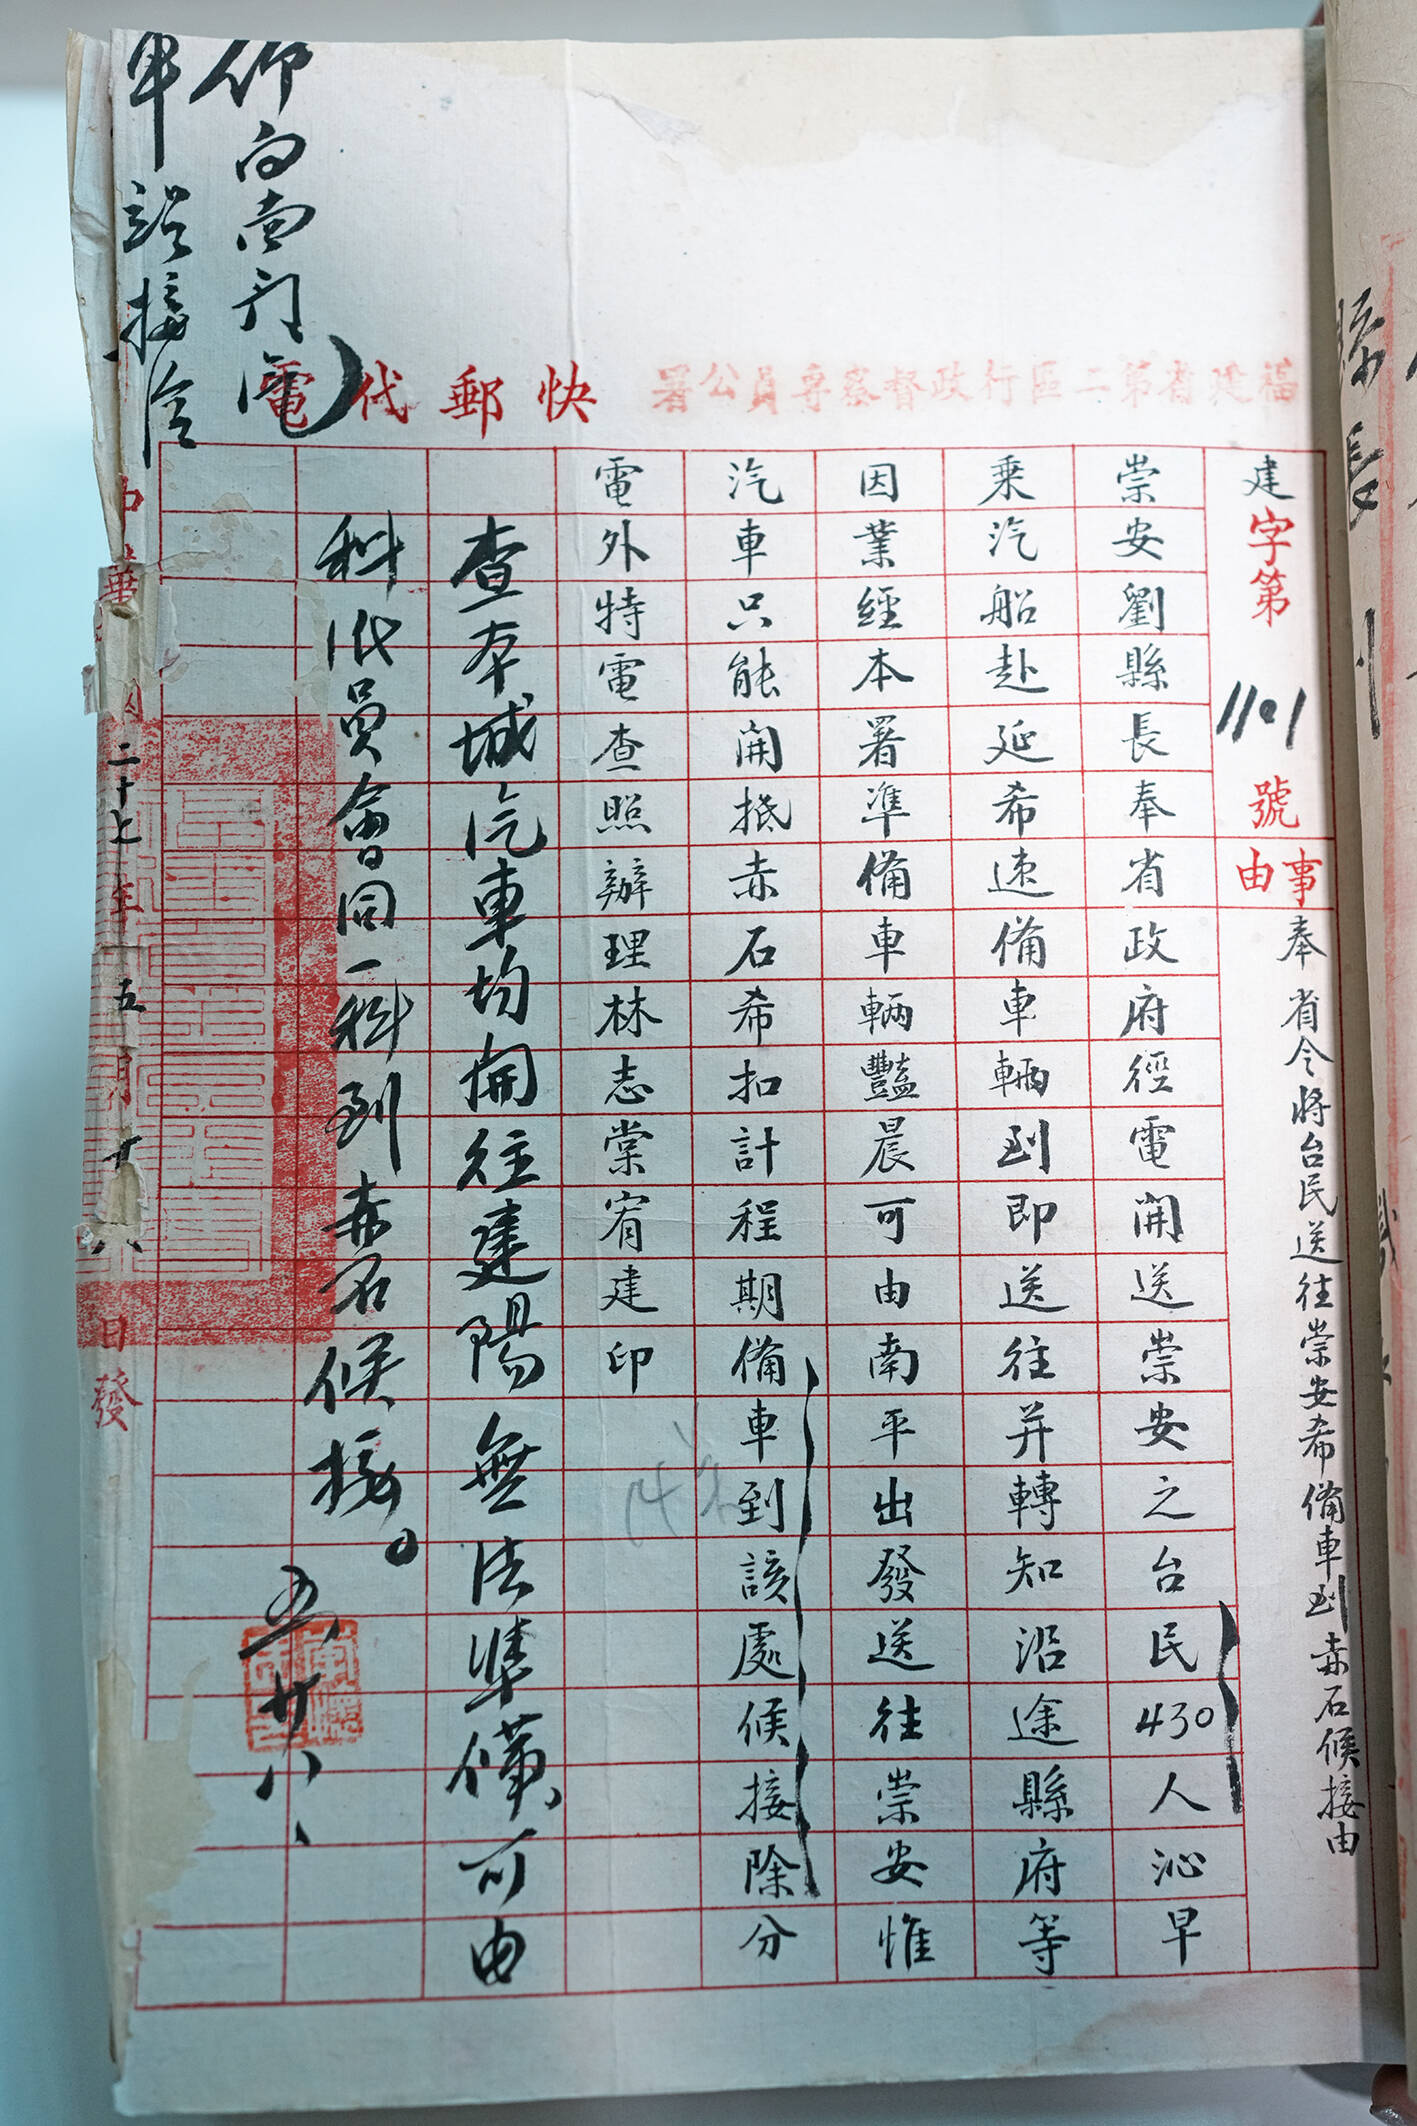 福建省第二區行政督察專員公署
快郵代電
建字第1101號
事由
奉省令將台民送往崇安希備車到赤石候接由
崇安劉縣長奉省政府徑電開送崇安之台民430人沁早
乘汽船赴延希速備車輛到即送往并轉知沿途縣府等
因業經本署準備車輛豔晨可由南平出發送往崇安惟
汽車只能開抵赤石希扣計程期備車到該處候接除分
電外特電查照辦理林志棠宥建印
查本城汽車均開往建陽無法準備可由
科派員會同一科到赤石候接。
五廿八、
二十七年五月廿六日發